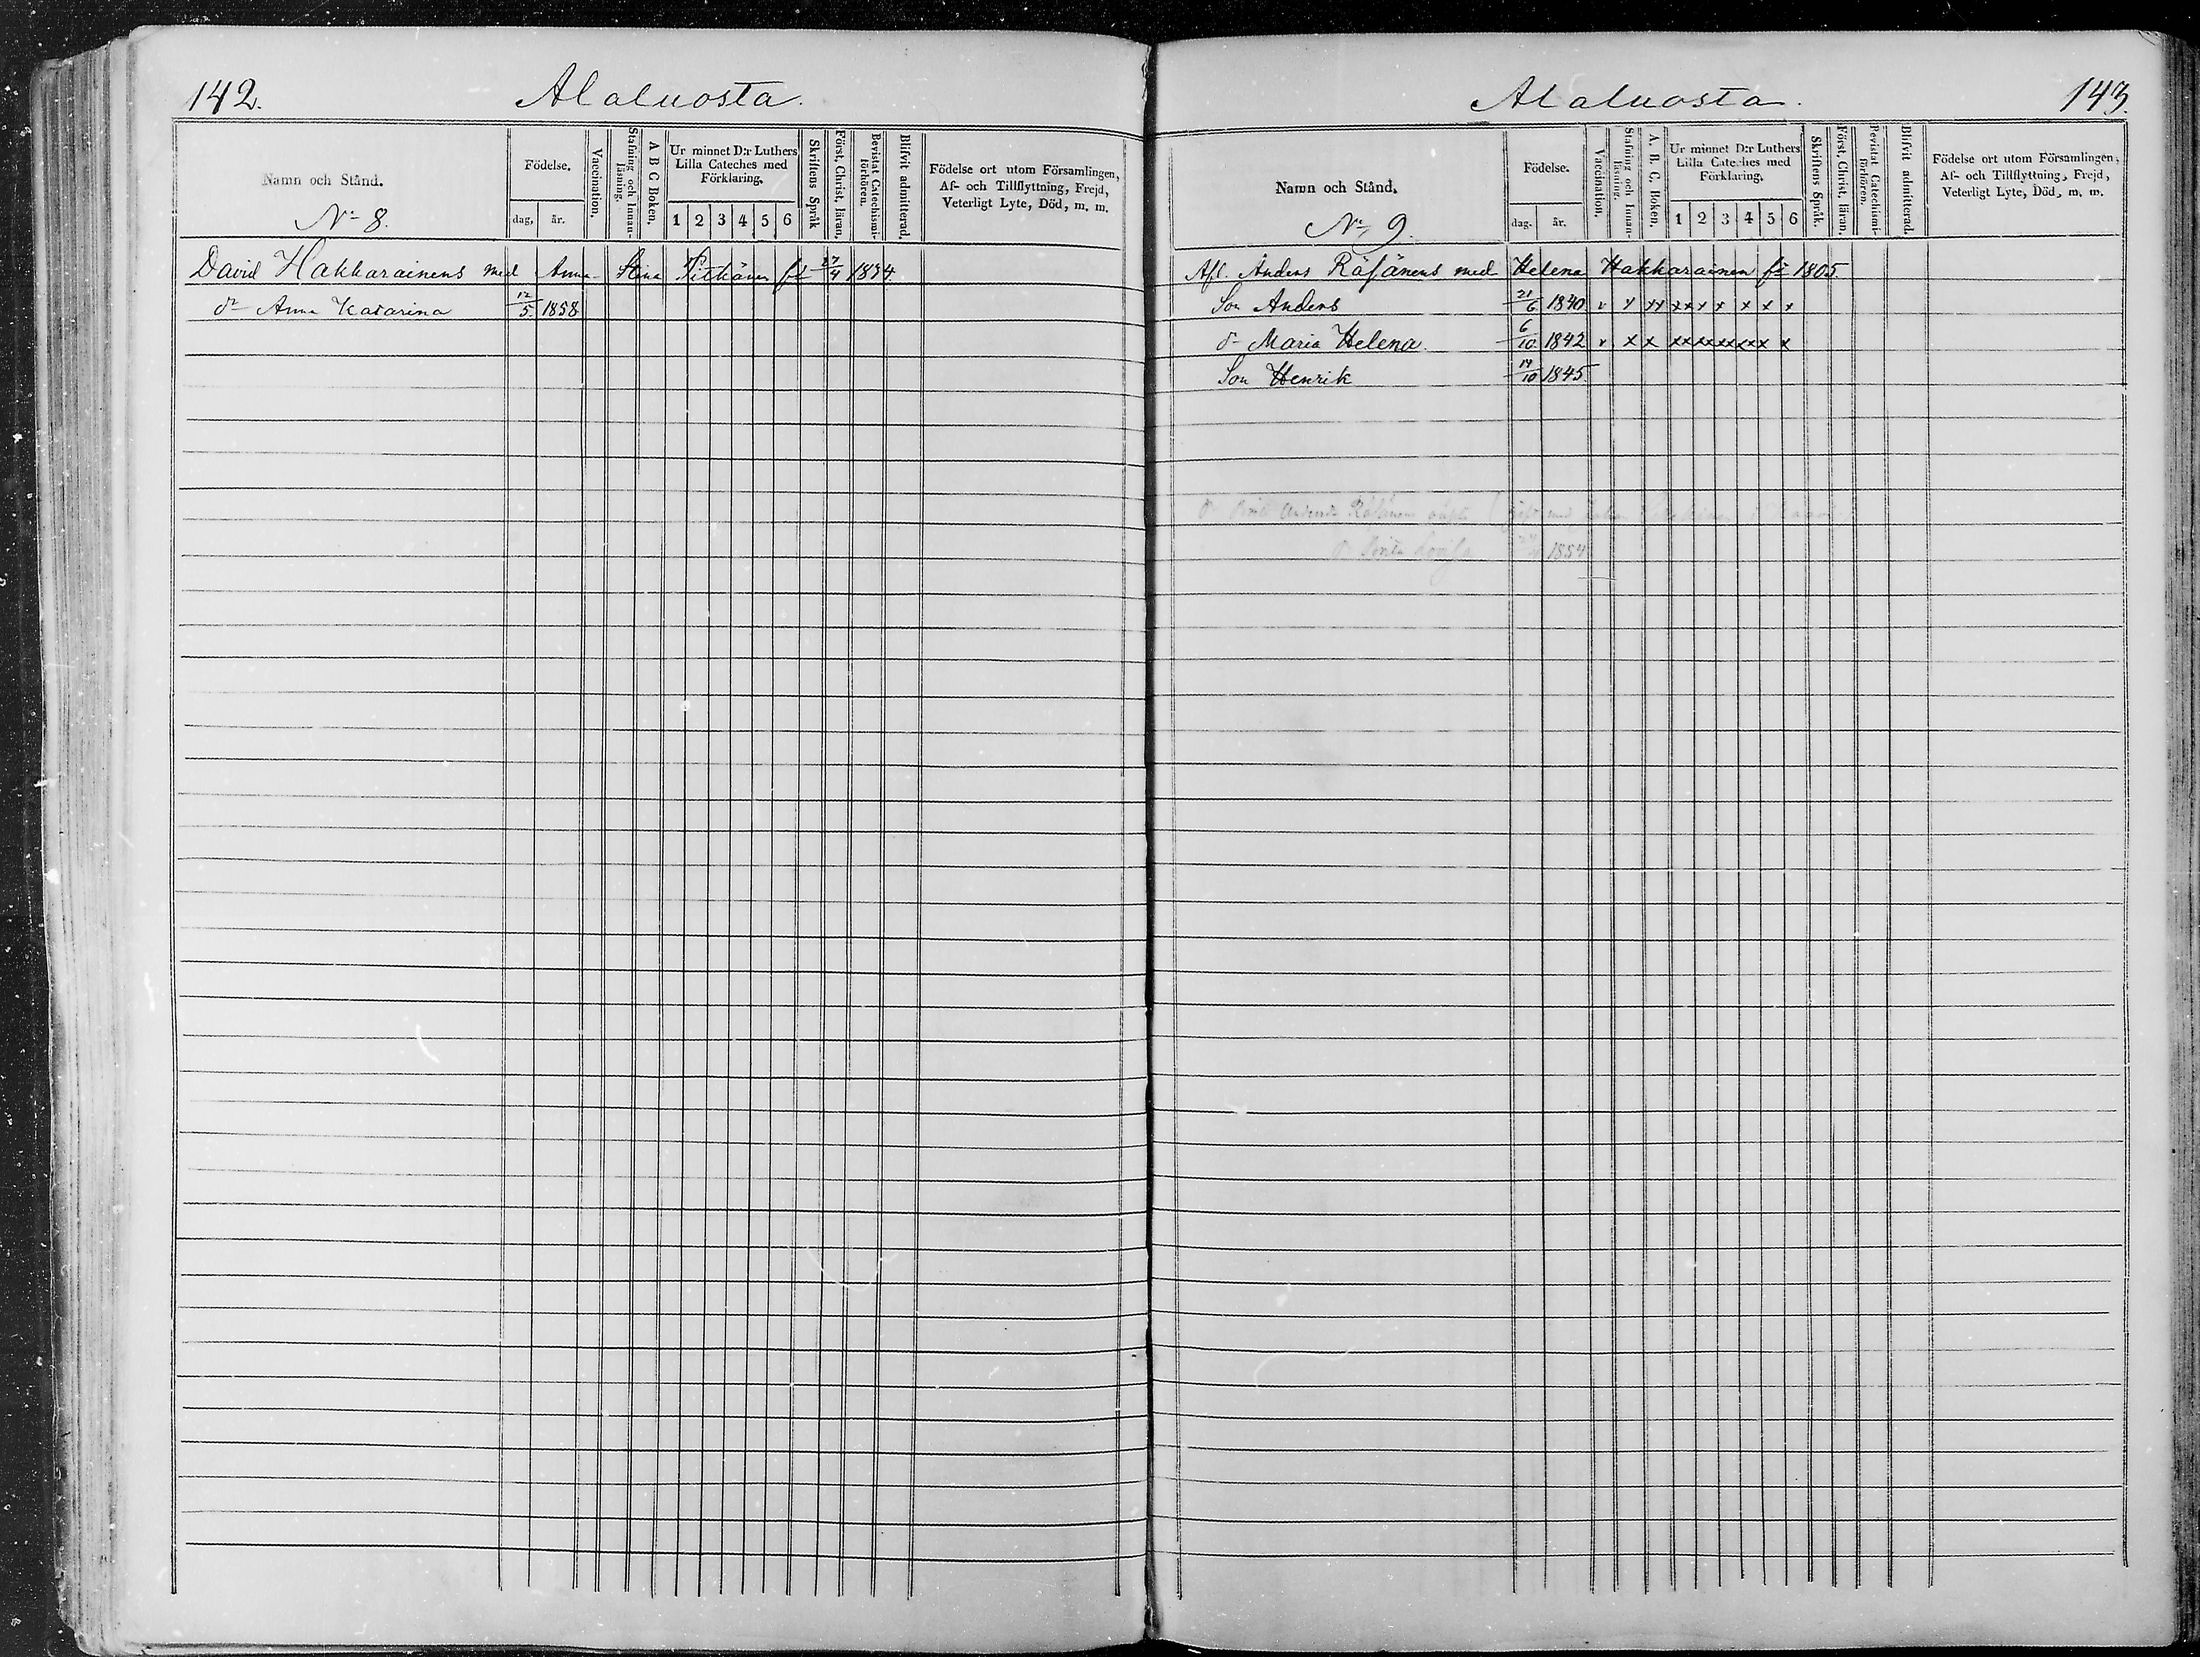 142. Alaluosta.
Namn och Stånd.
N:o 8.
Födelse.
dag, år.
Vaccination.
Stafning och Innanläsning.
A B C Boken.
Ur minnet D:r Luthers Lilla Cateches med Förklaring.
1 2 3 4 5 6
Skriftens Språk
Först. Christ. läran.
Bevistat Catechismiförhören.
Blifvit admitterad.
Födelse ort utom Församlingen,
Af- och Tillflyttning, Frejd,
Veterligt Lyte, Död, m. m.
David Hakkarainens med Anna Stina Pitkänen fd 27/4 1834.
dr Anna Katarina 12/5 1858
Alaluosta. 143.
Namn och Stånd.
N:o 9.
Födelse.
dag. år.
Vaccination.
Stafning och Innanläsning.
A. B. C. Boken.
Ur minnet D:r Luthers Lilla Cateches med Förklaring.
1 2 3 4 5 6
Skriftens Språk.
Först. Christ. läran.
Bevistat Catechismiförhören.
Blifvit admitterad.
Födelse ort utom Församlingen,
Af- och Tillflyttning, Frejd,
Veterligt Lyte, Död, m. m.
Afl. Anders Räsänens med Helena Hakkarainen fd 1805.
Son Anders 21/6 1840 v x xx xx x x x x x
dr Maria Helena. 6/10 1842 v x x xx xx xx xx x x
Son Henrik 14/10 1845.
Räsänens
1854